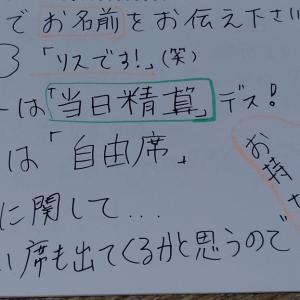 でお名前をお伝え下さい
「リスです!」(笑)
ーは「当日精算」デス!
は「自由席」
に関して...
い席も出てくるかと思うので
お持